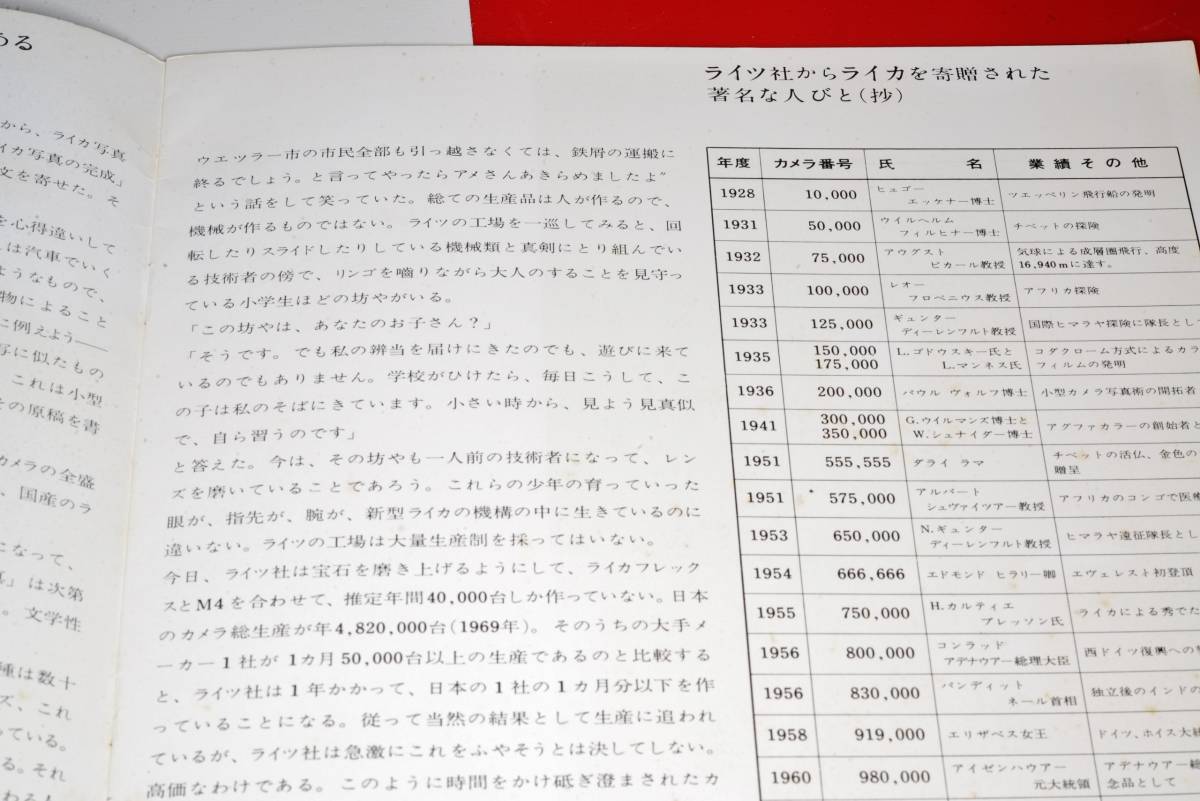 ある
から、ライカ写真
イカ写真の完成」
文を寄せた。そ
を心得違いして
は汽車でいく
ようなもので、
物によること
に例えよう——
写に似たもの
これは小型
その原稿を書
カメラの全盛
、国産のラ
になって、
真」は次第
。文学性
種は数十
ズ、これ
っている。
る。それ
ウエツラー市の市民全部も引っ越さなくては、鉄屑の運搬に
終るでしょう。と言ってやったらアメさんあきらめましたよ”
という話をして笑っていた。総ての生産品は人が作るので、
機械が作るものではない。ライツの工場を一巡してみると、回
転したりスライドしたりしている機械類と真剣にとり組んでい
る技術者の傍で、リンゴを嚙りながら大人のすることを見守っ
ている小学生ほどの坊やがいる。
「この坊やは、あなたのお子さん？」
「そうです。でも私の辨当を届けにきたのでも、遊びに来て
いるのでもありません。学校がひけたら、毎日こうして、こ
の子は私のそばにきています。小さい時から、見よう見真似
で、自ら習うのです」
と答えた。今は、その坊やも一人前の技術者になって、レン
ズを磨いていることであろう。これらの少年の育っていった
眼が、指先が、腕が、新型ライカの機構の中に生きているのに
違いない。ライツの工場は大量生産制を採ってはいない。
今日、ライツ社は宝石を磨き上げるようにして、ライカフレック
スとM4を合わせて、推定年間40,000台しか作っていない。日本
のカメラ総生産が年4,820,000台(1969年)。そのうちの大手メ
ーカー1社が1カ月50,000台以上の生産であるのと比較する
と、ライツ社は1年かかって、日本の1社の1カ月分以下を作
っていることになる。従って当然の結果として生産に追われ
ているが、ライツ社は急激にこれをふやそうとは決してしない。
高価なわけである。このように時間をかけ砥ぎ澄まされたカ
ライツ社からライカを寄贈された
著名な人びと(抄)
年度 カメラ番号 氏 名 業績その他
1928 10,000 ヒュゴー エッケナー博士 ツエッペリン飛行船の発明
1931 50,000 ウイルヘルム フィルヒナー博士 チベットの探険
1932 75,000 アウグスト ピカール教授 気球による成層圏飛行、高度
16,940mに達す。
1933 100,000 レオー フロベニウス教授 アフリカ探険
1933 125,000 ギュンター ディーレンフルト教授 国際ヒマラヤ探険に隊長とし
1935 150,000 175,000 L.ゴドウスキー氏と L.マンネス氏 コダクローム方式によるカラ
フィルムの発明
1936 200,000 パウル ヴォルフ博士 小型カメラ写真術の開拓者
1941 300,000 350,000 G.ウイルマンズ博士と W.シュナイダー博士 アグファカラーの創始者と
1951 555,555 ダライ ラマ チベットの活仏、金色の
贈呈
1951 575,000 アルバート シュヴァイツアー教授 アフリカのコンゴで医療
1953 650,000 N.ギュンター ディーレンフルト教授 ヒマラヤ遠征隊長とし
1954 666,666 エドモンド ヒラリー卿 エヴェレスト初登頂
1955 750,000 H.カルティエ ブレッソン氏 ライカによる秀でた
1956 800,000 コンラッド アデナウアー総理大臣 西ドイツ復興への
1956 830,000 パンディット ネール首相 独立後のインドの
1958 919,000 エリザベス女王 ドイツ、ホイス大統
1960 980,000 アイゼンハウアー 元大統領 アデナウアー総
念品として